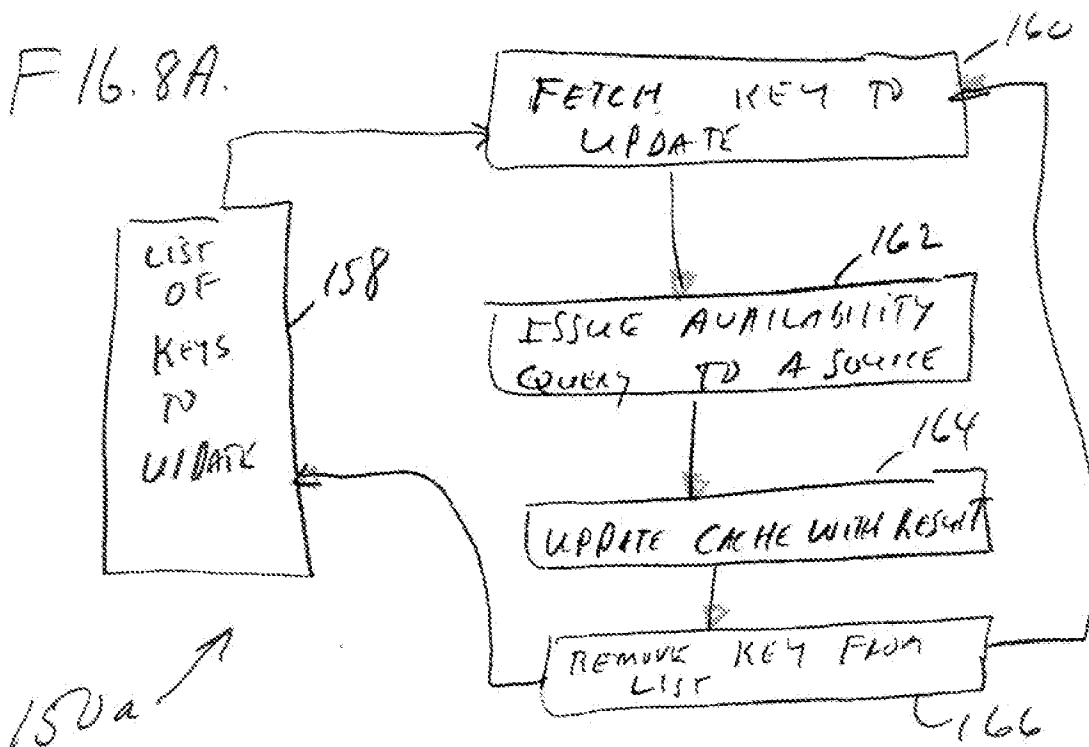 FIG. 8A.
160
FETCH KEY TO
UPDATE
LIST
OF
KEYS
TO
UPDATE
158
162
ISSUE AVAILABILITY
QUERY TO A SOURCE
164
UPDATE CACHE WITH RESULT
REMOVE KEY FROM
LIST
166
150a